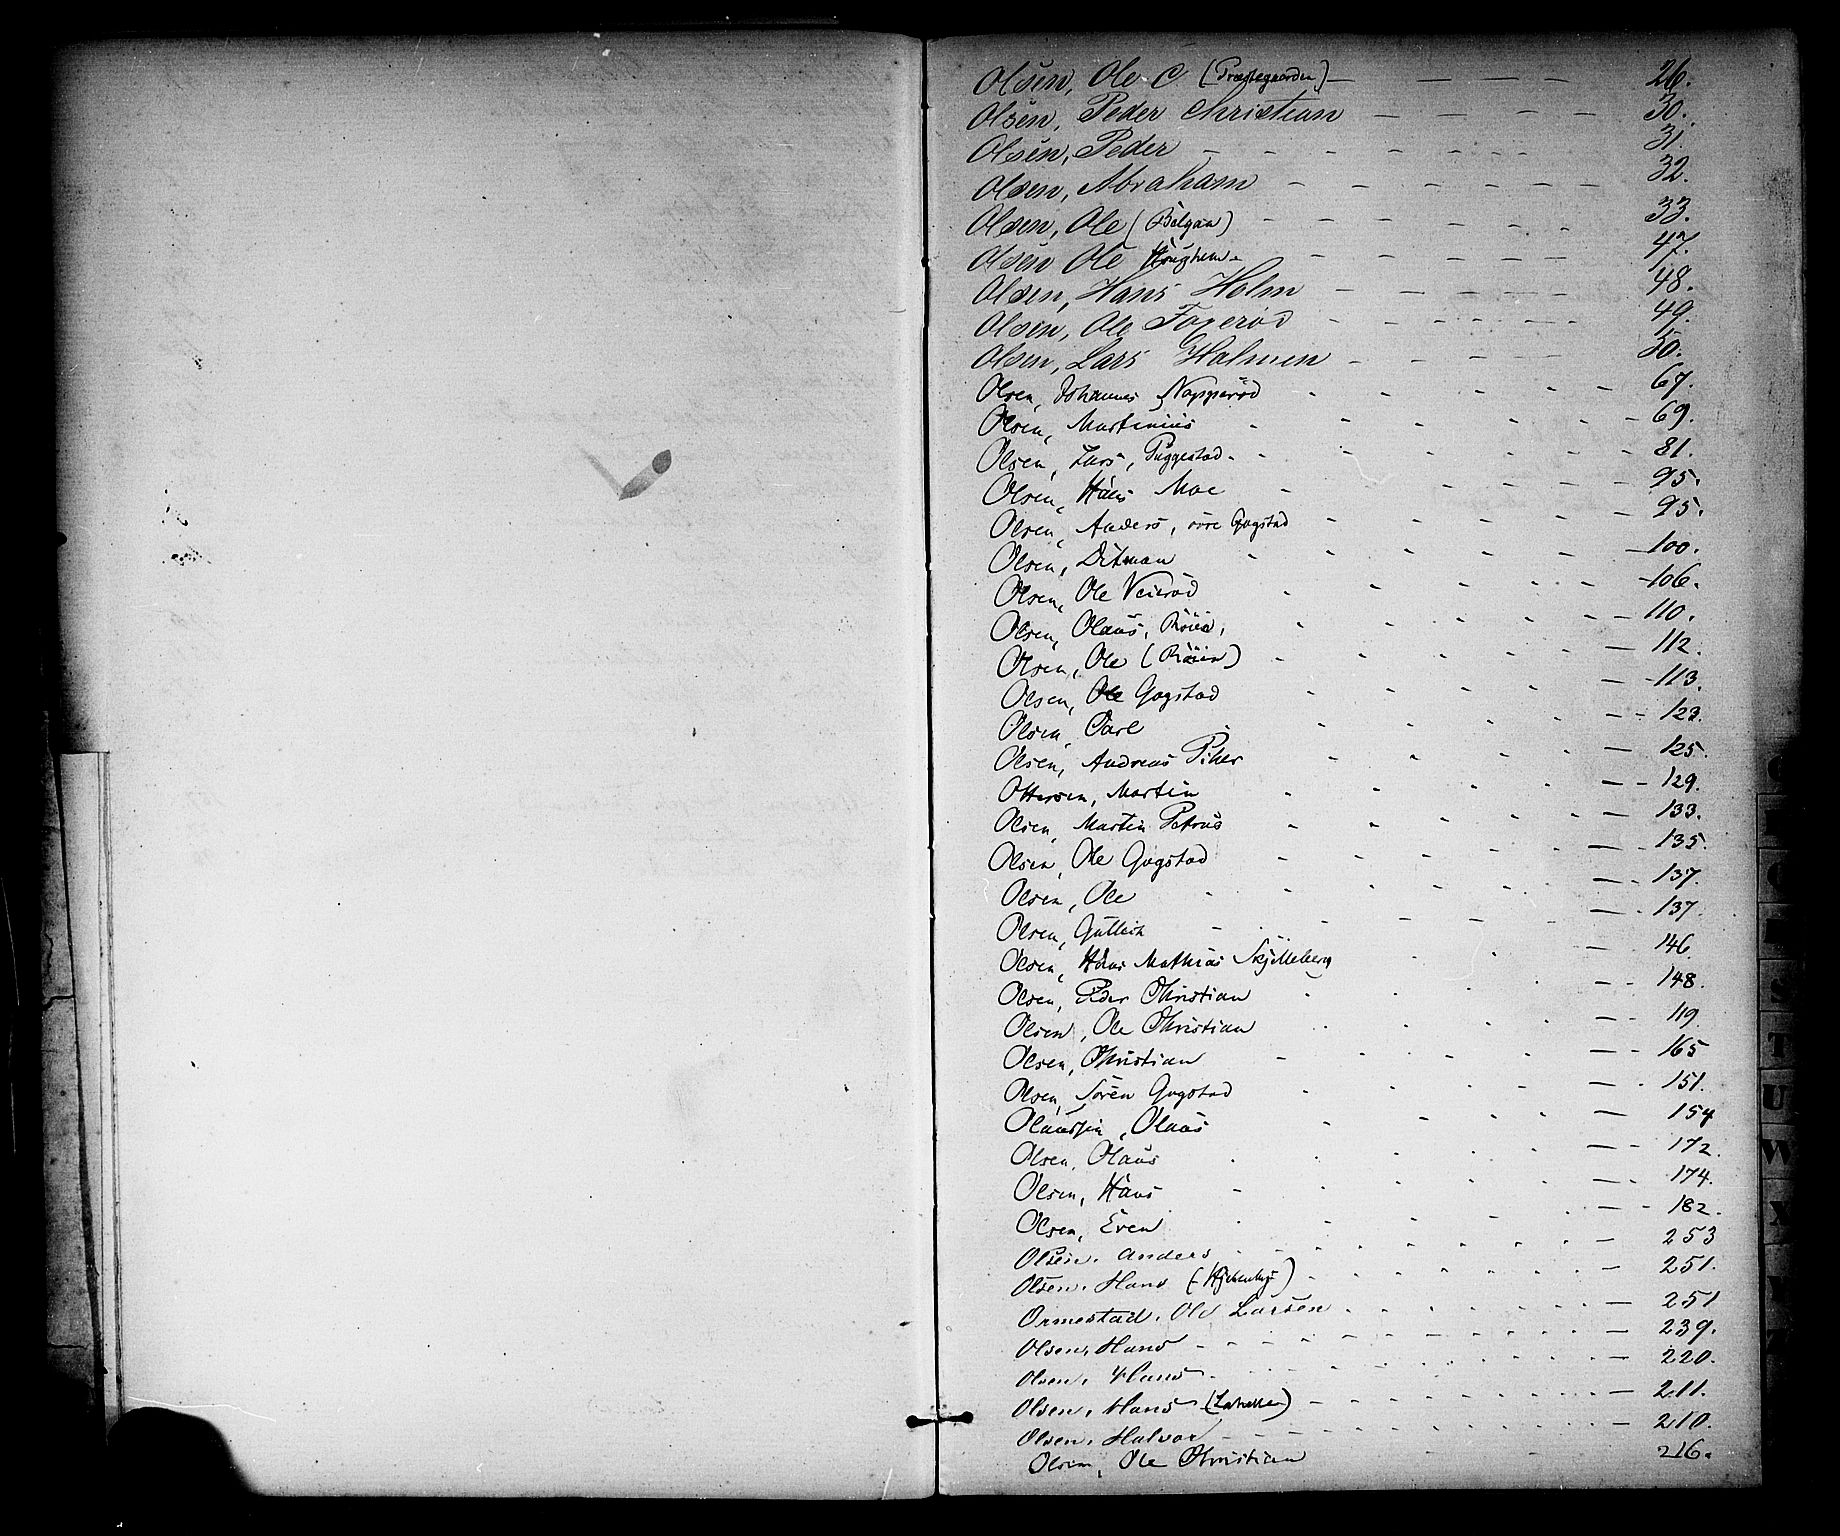 Olsen, Ole C. (Præstegaarden) — — — — 26.
Olsen, Peder Christian — — — — 30.
Olsen, Peder — — — — — — 31.
Olsen, Abraham — — — — — — 32.
Olsen, Ole (Bølgan) — — — — — 33.
Olsen Ole Haughem — — — — — 47.
Olsen, Hans Holm — — — — — 48.
Olsen, Ole Foxerød — — — — — 49.
Olsen, Lars Holmen — — — — 50.
Olsen, Johannes Napperød - - - - 67.
Olsen, Martinius - - - - - 69.
Olsen, Lars, Puggestad - - - - 81.
Olsen, Hans Moe - - - - 95.
Olsen, Anders, øvre Gogstad - - - - 95.
Olsen, Ditman - - - - - 100.
Olsen, Ole Veierød - - - - 106.
Olsen, Olaus, Röien, - - - - 110.
Olsen, Ole (Röien) - - - - - 112.
Olsen, Ole Gogstad - - - - - 113.
Olsen, Carl 123.
Olsen, Andreas Piher - - - - 125.
Ottersen, Martin - - - - 129.
Olsen, Martin Petrus - - - - 133.
Olsen, Ole Gogstad - - - - 135.
Olsen, Ole - - - - - 137.
Olsen, Gullich - - - - - 137.
Olsen, Hans Mathias Skjelleberg - - - 146.
Olsen, Peder Christian - - - - 148.
Olsen, Ole Christian - - - - 119.
Olsen, Christian - - - - 165
Olsen, Søren Gogstad - - - - 151.
Olaussen, Olaus - - - - 154
Olsen, Olaus - - - - - 172.
Olsen, Hans - - - - - 174.
Olsen, Even - - - - - 182.
Olsen. Anders - - - - - - 253
Olsen. Hans - - - - - 251.
Ormestad. Ole Larsen - - - - - 251
Olsen. Hans - - - - - - 239.
Olsen. Hans - - - - - - 220.
Olsen. Hans - - - - - 211.
Olsen. Halvor - - - - - - 210.
Olsen, Ole Christian - - - 216.
S
T
U
W
X